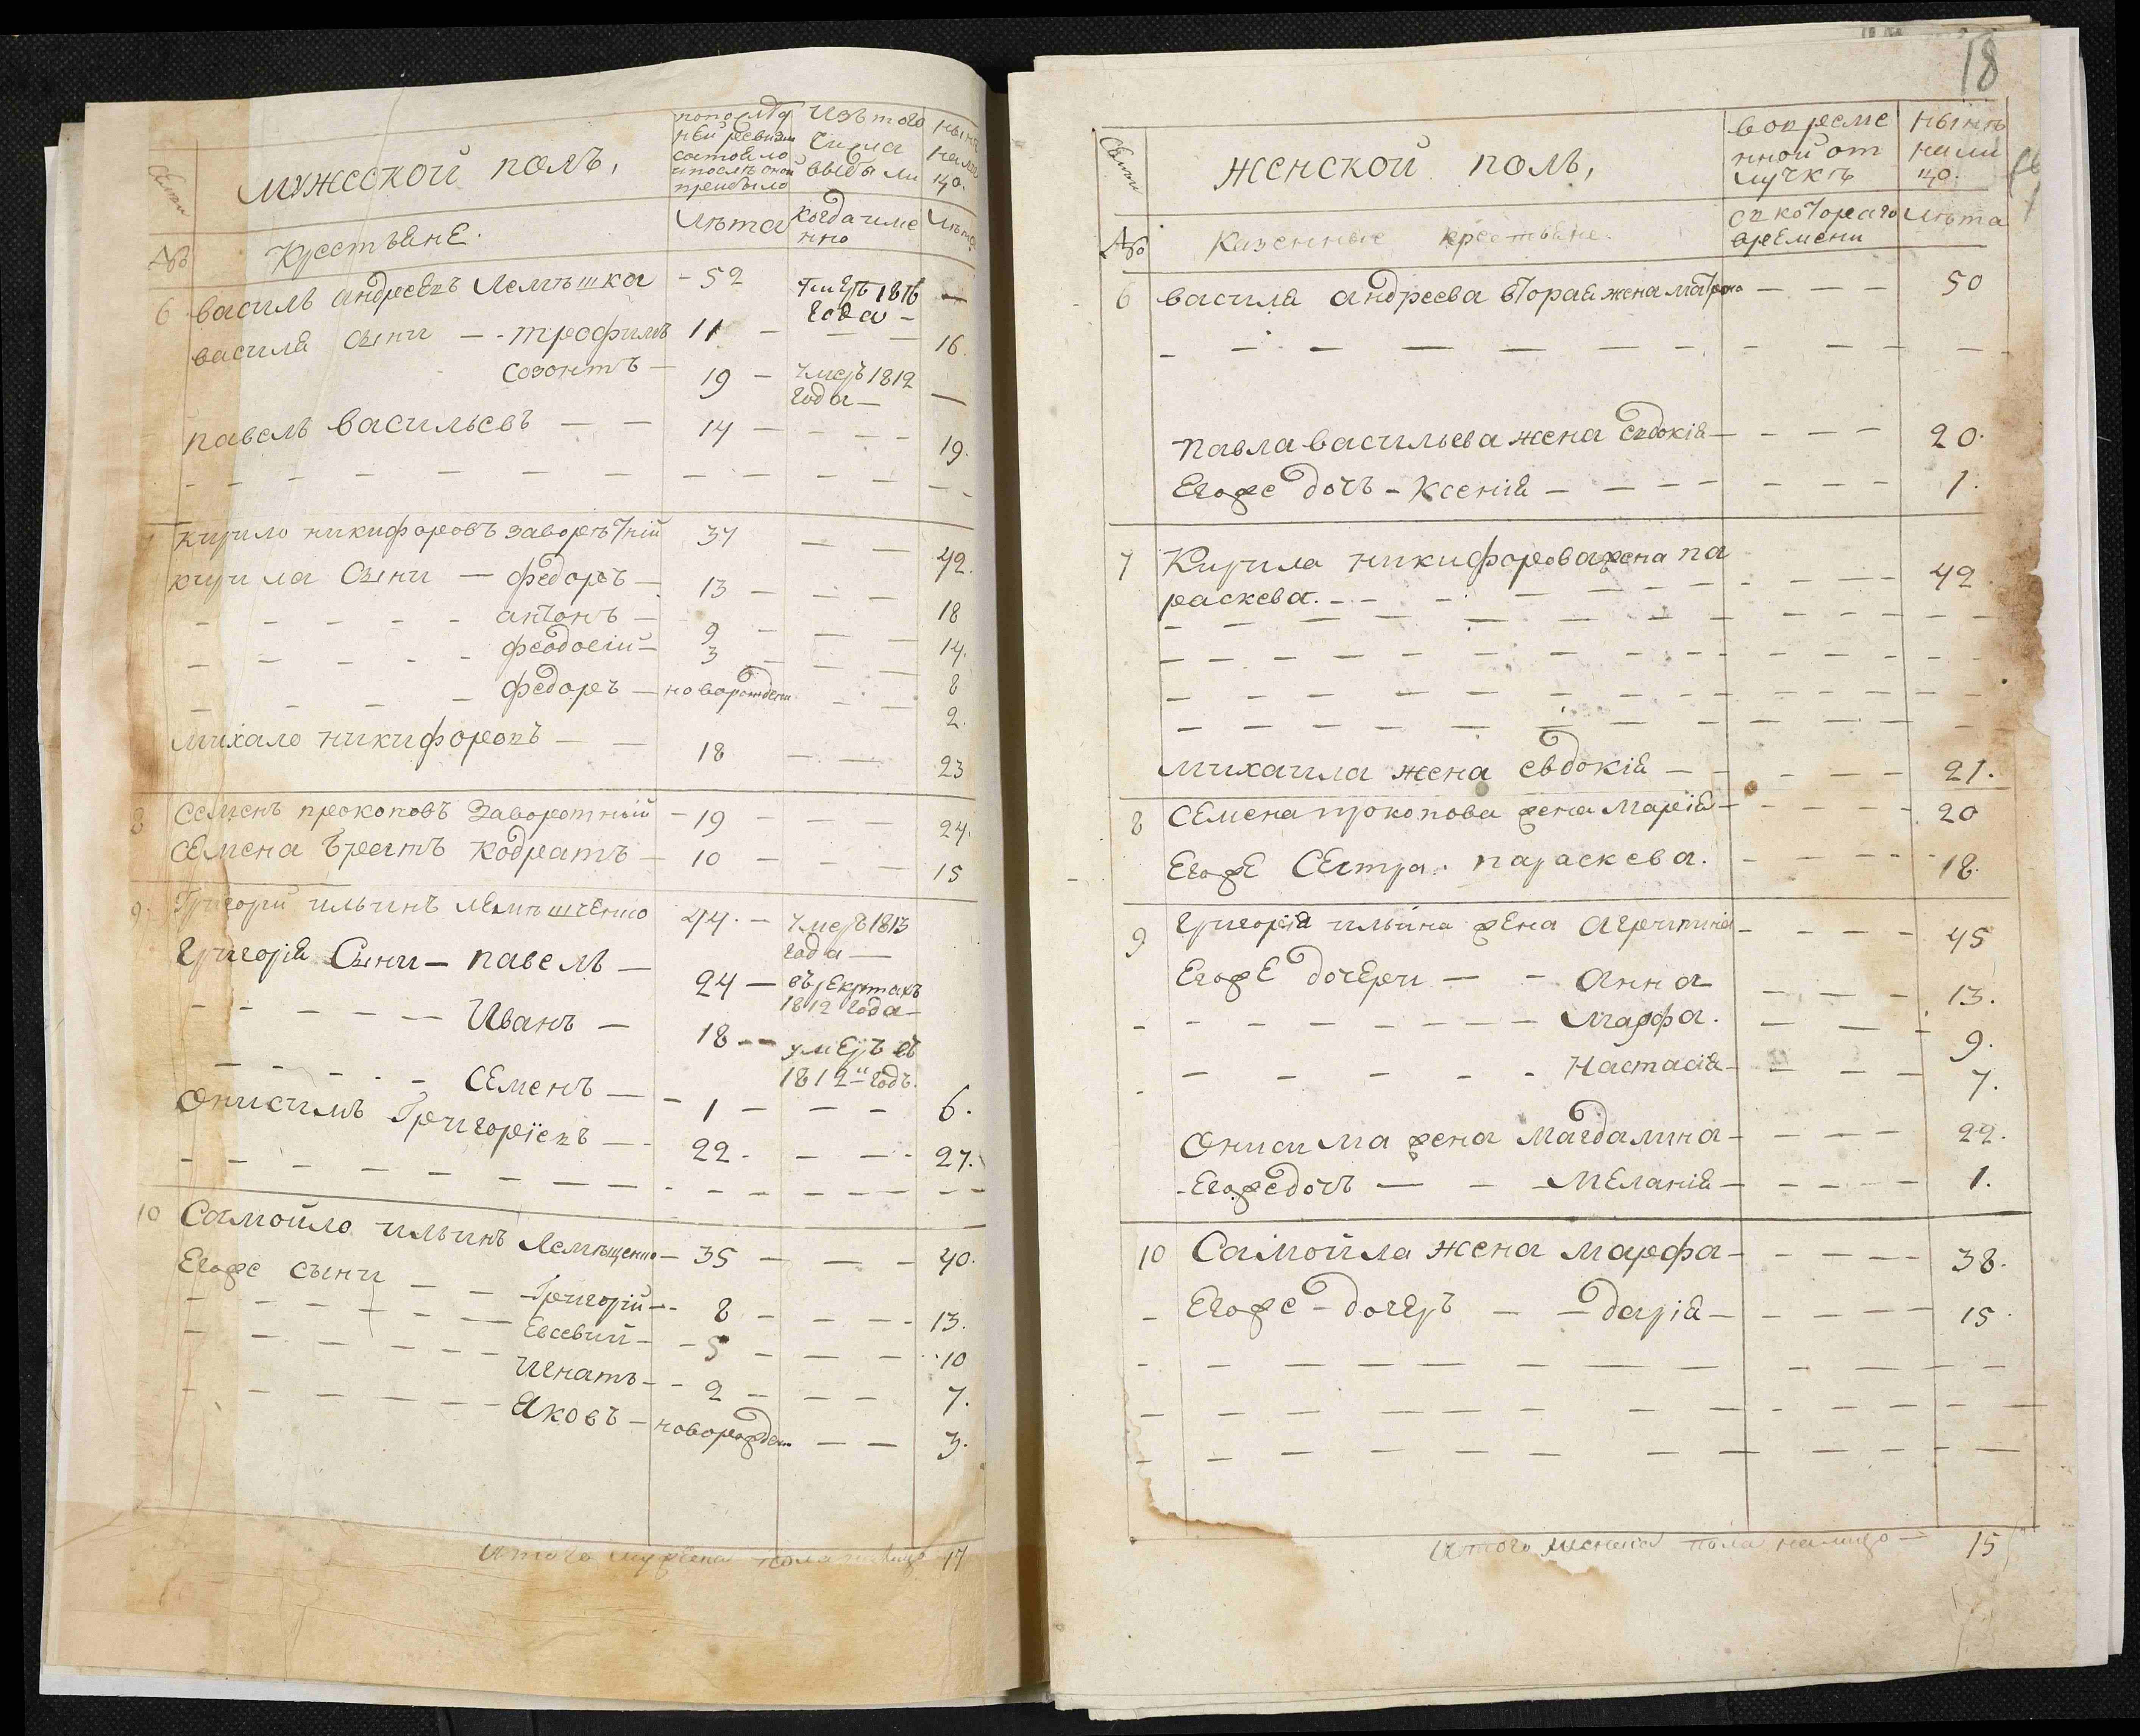 Семьи
мужеской полъ,
попослѣд
ней ревизіи
состояло
и послѣ оной
прибыло
Изъ того
числа
выбыли
нынѣ
нали
цо.
№
Крестьяне.
Лѣта
Когда име
нно
Лѣта
6 василь андреевъ Лемѣшка - 52 умеръ 1816 —
года —
василя сыни — - трофимъ 11 — — — 16.
созонтъ — 19 — умеръ 1812 —
года —
павелъ васильевъ — — 14 — - - - 19.
7 кирило никифоровъ заворотній 37 — — 42.
кирила сыни — федоръ — 13 — — — 18
антонъ — 9 — — — 14.
феодосій — 3 — — — 8
федоръ — новорожден - - - 2.
михайло никифоровъ — — 18 — — 23
8 Семенъ прокоповъ Заворотній - 19 — — — 24.
Семена братъ Кодратъ — 10 — — — 15
9. Григорій ильинъ лемѣшченко 44. — умеръ 1813
года —
григорія Сыни — павелъ — 24 — въ рекрутахъ
1812 года —
Иванъ — 18 — умеръ въ
1812м годѣ.
Семенъ — - 1 — — — 6.
Онисимъ Григоріевъ — - 22. — — - 27.
10 Самойло ильинъ Лемѣщенко — 35 — — - 40.
Егоже сыни — — Григорій — - 8 — — - - 13.
Евсевий — - 5 — — — 10
Игнатъ — - 2 — — — 7.
Яковъ — новорожден — — 3.
Итого мужеска пола налицо 17
18
Семьи
женской полъ,
во време
нной от
лучкѣ
нынѣ
нали
цо.
№
Казенные крестьяне.
съ котораго
времени
Лѣта
6 василя андреева вторая жена матрона — — — 50
павла васильева жена Евдокія — - — — — 20.
Егоже дочь - Ксенія — — — — — — — 1.
7 Кирила никифорова жена па
раскева. — — — — 42
михаила жена евдокія — — — — — 21.
8 Семена прокопова жена Марія — — — — 20
Егоже Сестра. параскева. — — — — 18.
9 григорія ильина жена агрипина — — — — 45
Егоже дочери — — Анна — — — 13.
марфа. — — — 9.
Настасія — — — — 7.
Онисима жена магдалина — — — — 22.
Егоже дочь — — меланія — — — — 1.
10 Самойла жена марфа — — — — — 38.
Егоже — дочеръ — — дарія — — — — 15.
Итого женска пола налицо — 15